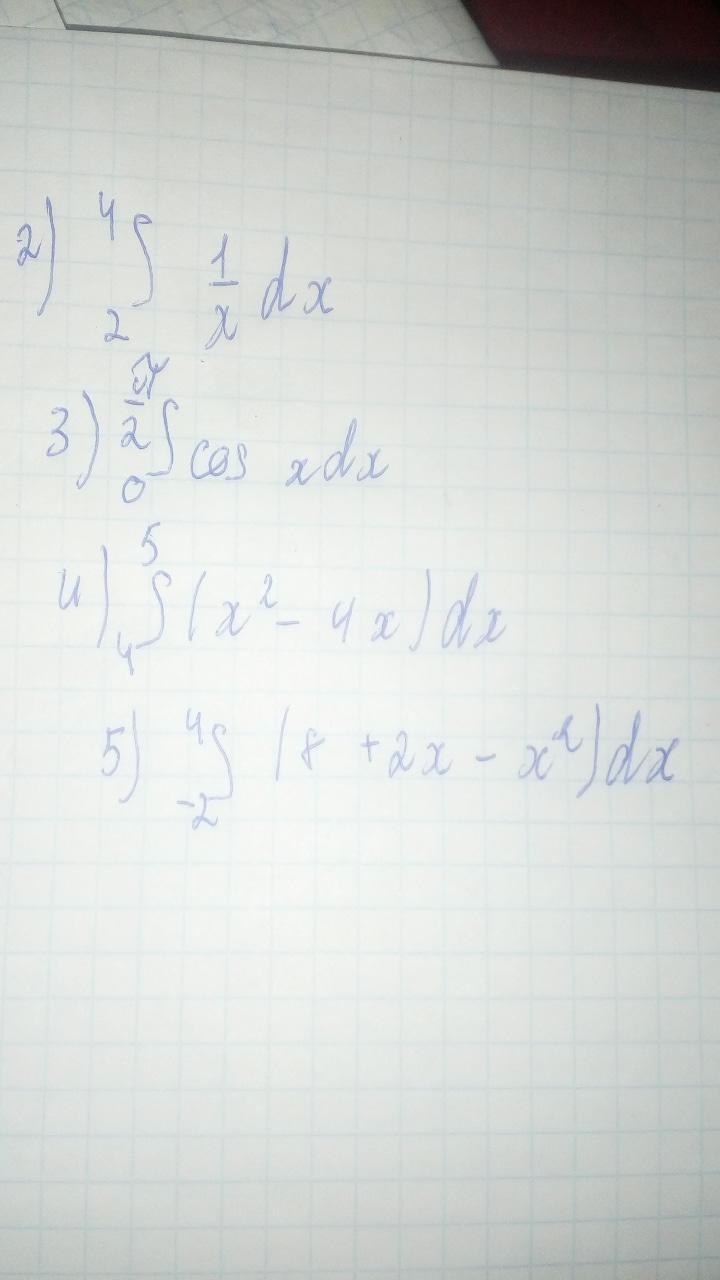 2) ∫₂⁴ 1/x dx
3) ∫₀^(π/2) cos x dx
4) ∫₄⁵ (x² - 4x) dx
5) ∫₋₂⁴ (8 + 2x - x²) dx